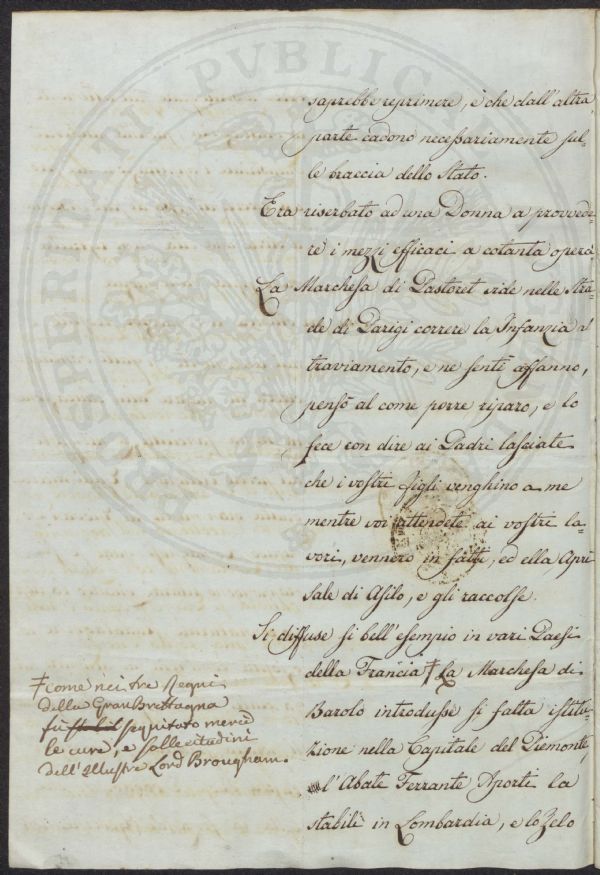 saprebbe reprimere, è che dall'altra
parte cadono necessariamente sul-
le braccia dello Stato.
Era riserbato ad una Donna a provvede-
re i mezzi efficaci a cotanta opera
La Marchesa di Pastoret vide nelle Stra-
de di Parigi correre la Infanzia al
traviamento, e ne sentì affanno,
pensò al come porre riparo, e lo
fece con dire ai Padri lasciate
che i vostri figli venghino a me
mentre voi attendete ai vostri la-
vori, vennero in fatti, ed ella Aprì
Sale di Asilo, e gli raccolse.
Si diffuse sì bell'esempio in vari Paesi
della Francia † La Marchesa di
Barolo introdusse sì fatta istitu-
zione nella Capitale del Piemonte,
l'Abate Ferrante Aporti la
stabilì in Lombardia, e lo Zelo
† come nei tre Regni
della Gran Brettagna
fù seguitato mercè
le cure, e sollecitudini
dell'Illustre Lord Brougham.
PROSPERITATI PUBLICAE